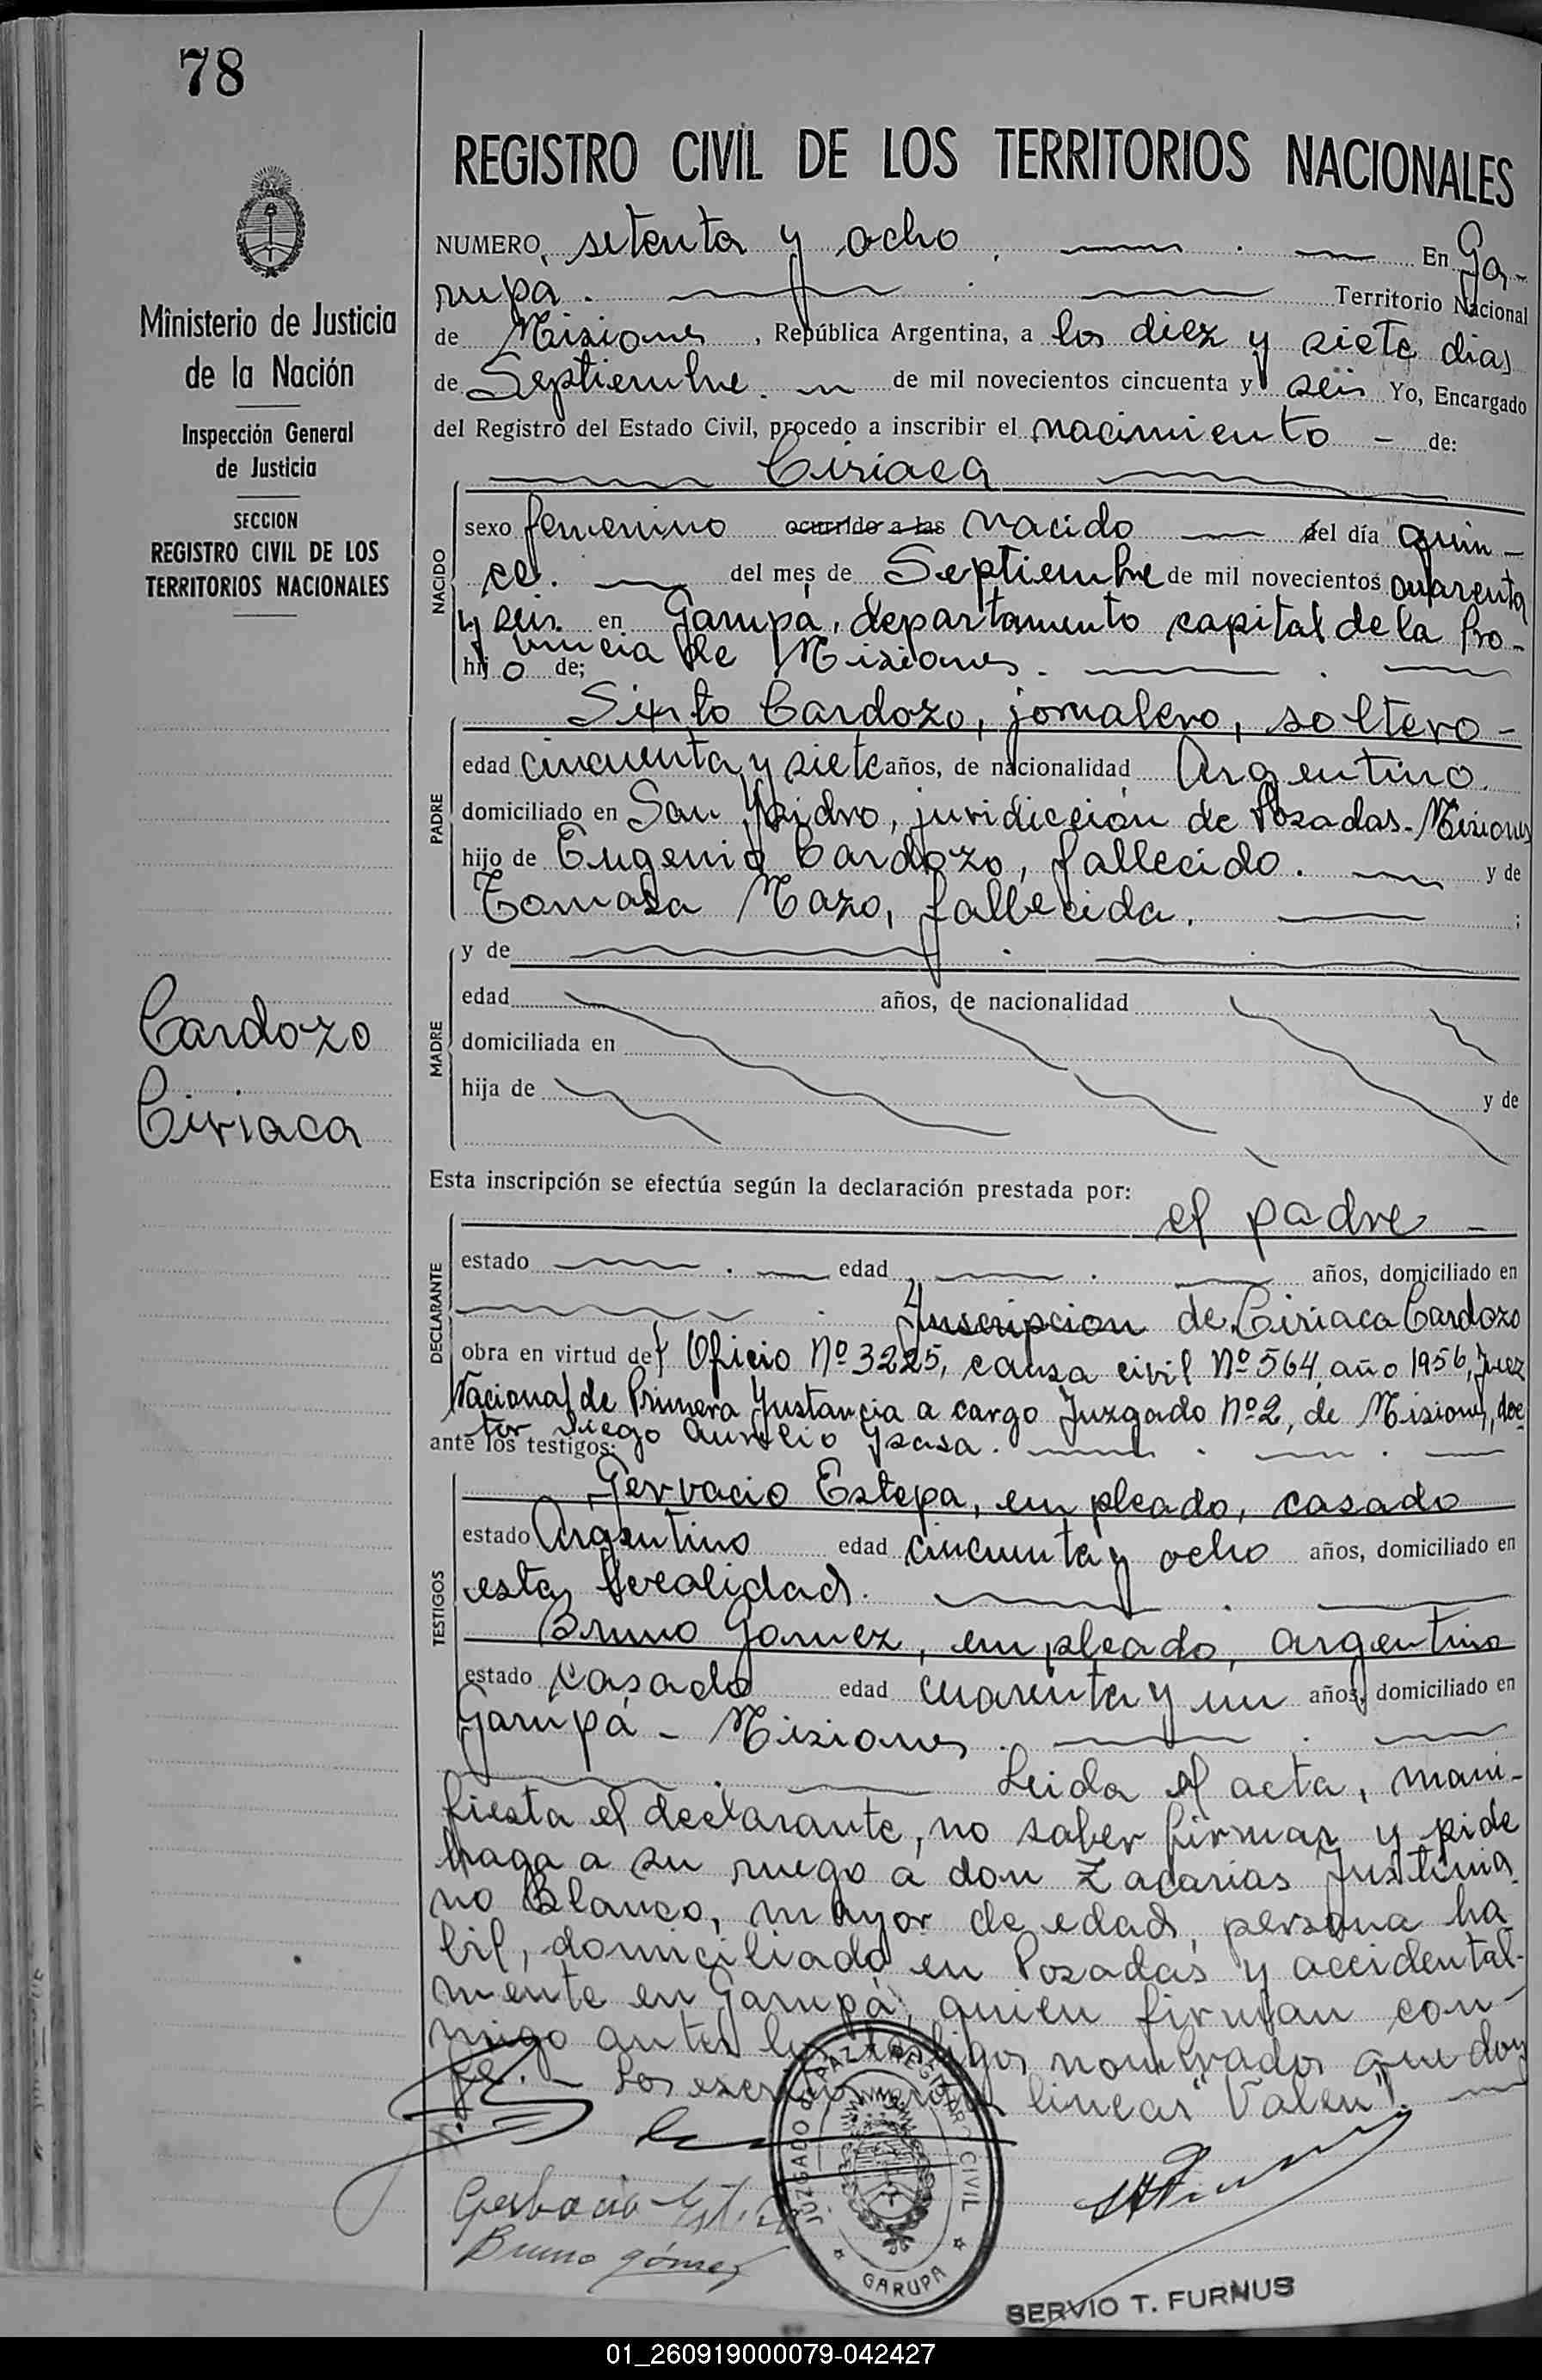 78
REGISTRO CIVIL DE LOS TERRITORIOS NACIONALES
Ministerio de Justicia
de la Nación
Inspección General
de Justicia
SECCION
REGISTRO CIVIL DE LOS
TERRITORIOS NACIONALES
Cardozo
Ciriaca
NUMERO, setenta y ocho. En Ga-
rupá. Territorio Nacional
de Misiones, República Argentina, a los diez y siete dias
de Septiembre. de mil novecientos cincuenta y seis Yo, Encargado
del Registro del Estado Civil, procedo a inscribir el nacimiento - de:
Ciriaca
NACIDO
sexo femenino ocurrido a las nacido del día quin-
ce. del mes de Septiembre de mil novecientos cuarenta
y seis. en Garupá, departamento capital de la Pro-
vincia de Misiones.
hijo de;
PADRE
Sixto Cardozo, jornalero, soltero-
edad cincuenta y siete años, de nacionalidad Argentino.
domiciliado en San Ysidro, juridicción de Posadas-Misiones
hijo de Eugenio Cardozo, fallecido. y de
Tomasa Mazo, fallecida. ;
MADRE
y de
edad años, de nacionalidad
domiciliada en
hija de y de
Esta inscripción se efectúa según la declaración prestada por:
el padre -
DECLARANTE
estado edad años, domiciliado en
Ynscripcion de Ciriaca Cardozo
obra en virtud de Oficio Nº 3225, causa civil Nº 564, año 1956, Juez
Nacional de Primera Ynstancia a cargo Juzgado Nº 2, de Misiones, doc
tor Diego Aurelio Ysasa.
ante los testigos:
TESTIGOS
Gervacio Estepa, empleado, casado
estado Argentino edad cincuenta y ocho años, domiciliado en
esta localidad.
Bruno Gomez, empleado, argentino
estado casado edad cuarenta y un años, domiciliado en
Garupá - Misiones.
Leida el acta, mani-
fiesta el declarante, no saber firmar y pide
haga a su ruego a don Zacarias Justinia
no Blanco, mayor de edad, persona ha
bil, domiciliado en Posadas y accidental-
mente en Garupá, quien firman con-
migo antes los testigos nombrados que doy
fe. - Los lineas "Valen".
Bruno gómez
JUZGADO DE PAZ Y REGISTRO CIVIL
GARUPA
SERVIO T. FURNUS
01_260919000079-042427